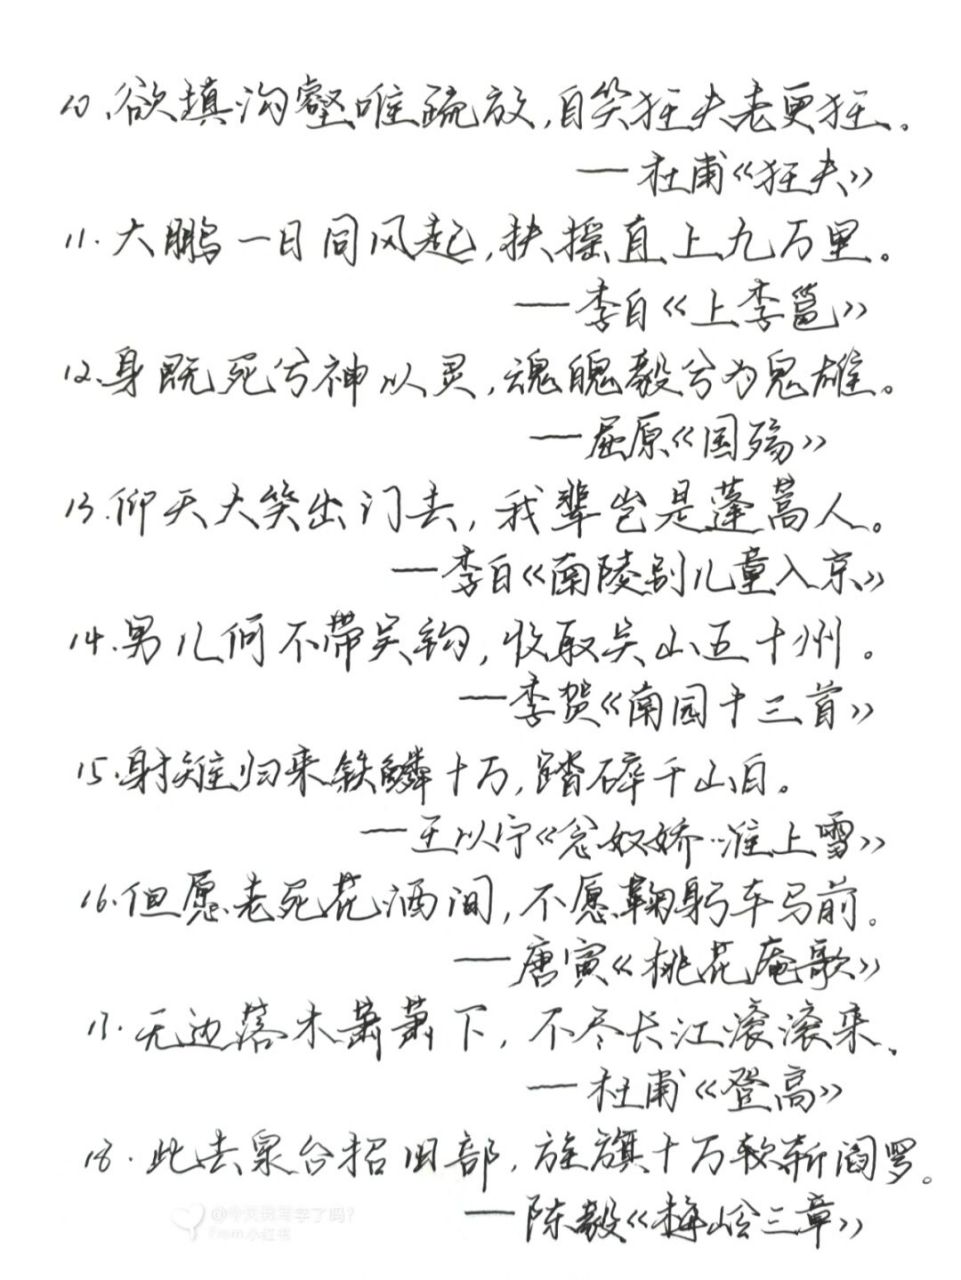 10、欲填沟壑唯疏放,自笑狂夫老更狂。
——杜甫《狂夫》
11.大鹏一日同风起,扶摇直上九万里。
——李白《上李邕》
12、身既死兮神以灵,魂魄毅兮为鬼雄。
——屈原《国殇》
13.仰天大笑出门去,我辈岂是蓬蒿人。
——李白《南陵别儿童入京》
14.男儿何不带吴钩,收取关山五十州。
——李贺《南园十三首》
15.射雉归来铁鳞十万,踏碎千山白。
——王以宁《念奴娇·淮上雪》
16.但愿老死花酒间,不愿鞠躬车马前。
——唐寅《桃花庵歌》
17.无边落木萧萧下,不尽长江滚滚来、
——杜甫《登高》
18.此去泉台招旧部,旌旗十万斩阎罗。
@今天你写字了吗?
From小红书
——陈毅《梅岭三章》